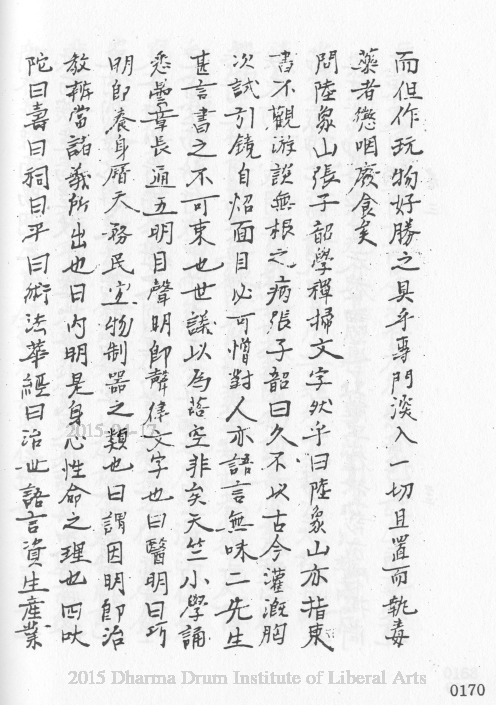 而但作玩物好勝之具乎專門深入一切且置而執毒
藥者懲咽廢食矣
問陸象山張子韶學禪掃文字然乎曰陸象山亦指東
書不觀游談無根之病張子韶曰久不以古今灌溉胸
次試引鏡自炤面目必可憎對人亦語言無味二先生
甚言書之不可束也世議以為落空非矣天竺小學誦
悉曇章長通五明曰聲明即聲律文字也曰醫明曰巧
明即養身曆天務民宜物制器之類也曰謂因明即治
教辨當諸義所出也曰內明是身心性命之理也四吠
陀曰壽曰祠曰平曰術法華經曰治世語言資生産業
2015-04-17
2015 Dharma Drum Institute of Liberal Arts
0170